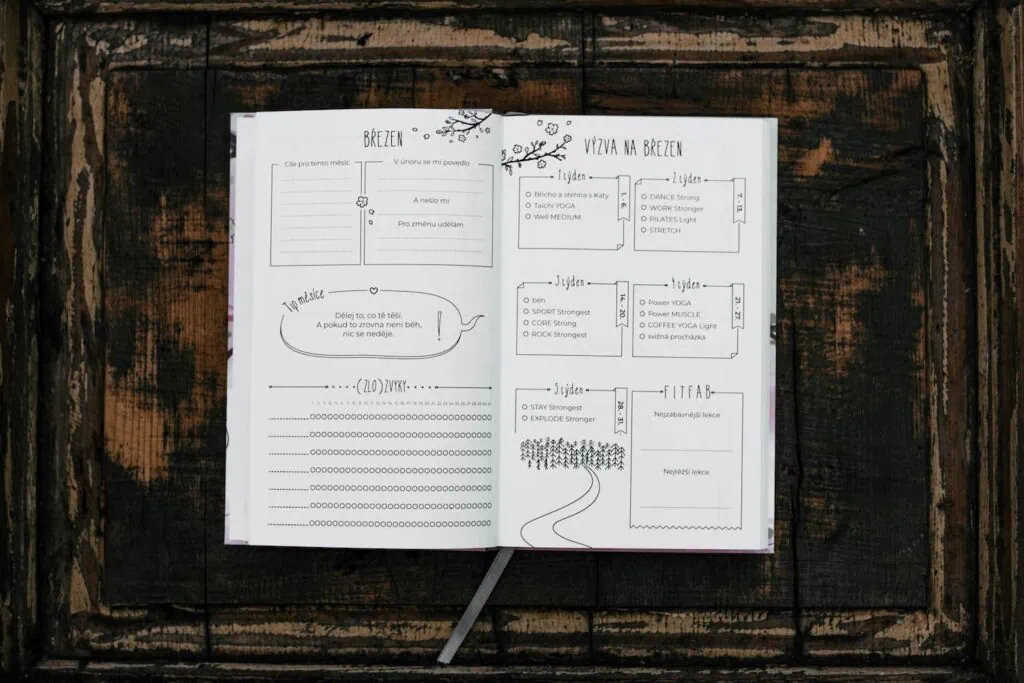 BŘEZEN
Cíle pro tento měsíc
V únoru se mi povedlo
A nešlo mi
Pro změnu udělám
Tip měsíce
Dělej to, co tě těší.
A pokud to zrovna není běh,
nic se neděje.
!
(ZLO)ZVYKY
VÝZVA NA BŘEZEN
1.týden
1. - 6.
Břicho a stehna s Katy
Taichi YOGA
Well MEDIUM
2.týden
7. - 13.
DANCE Strong
WORK Stronger
PILATES Light
STRETCH
3.týden
14. - 20.
běh
SPORT Strongest
CORE Strong
ROCK Strongest
4.týden
21. - 27.
Power YOGA
Power MUSCLE
COFFEE YOGA Light
svižná procházka
5.týden
28. - 31.
STAY Strongest
EXPLODE Stronger
FITFAB
Nejzábavnější lekce
Nejtěžší lekce